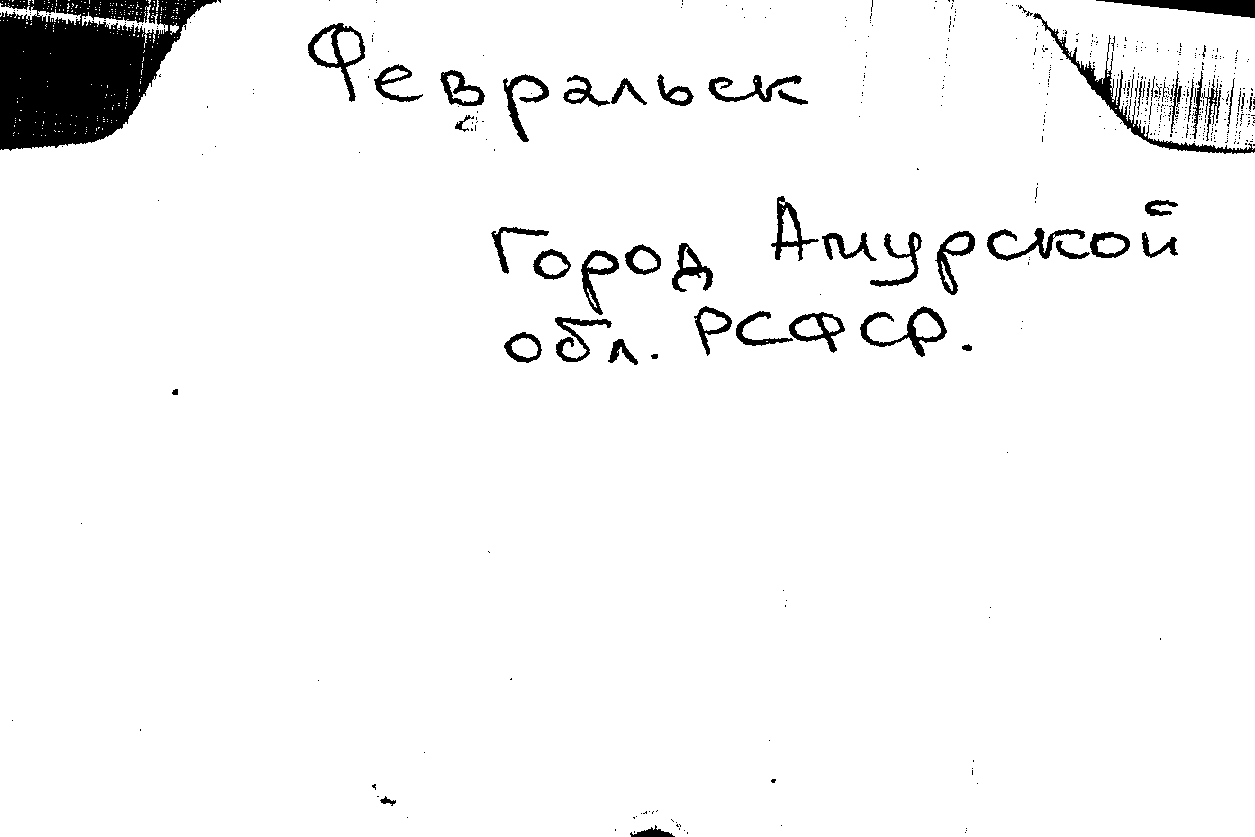 Февральск
Город Амурской
обл. РСФСР.